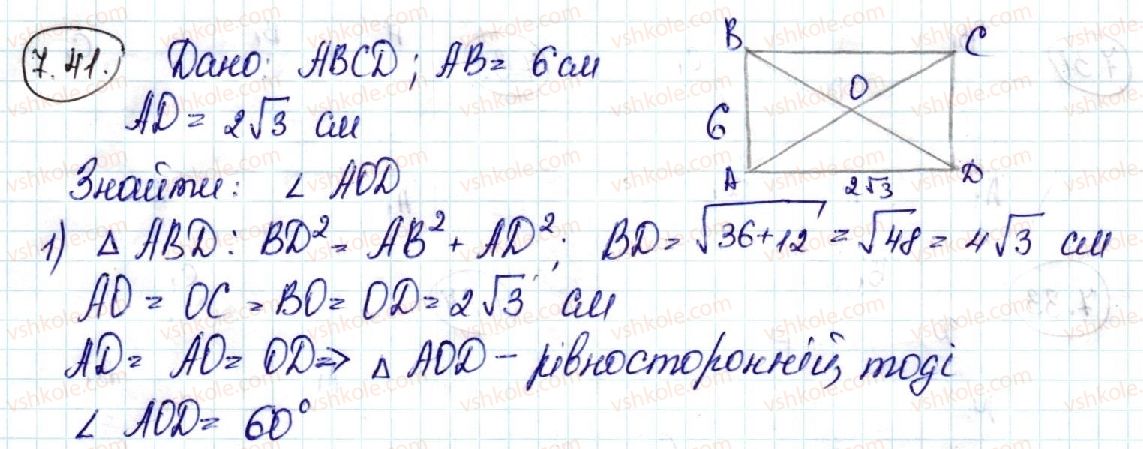 7.41. Дано: ABCD; AB = 6 см
AD = 2√3 см
Знайти: ∠ AOD
B C
O
6
A D
2√3
1) △ ABD: BD² = AB² + AD²; BD = √36+12 = √48 = 4√3 см
AO = OC = BO = OD = 2√3 см
AD = AO = OD => △ AOD – рівносторонній, тоді
∠ AOD = 60°
vshkole.com